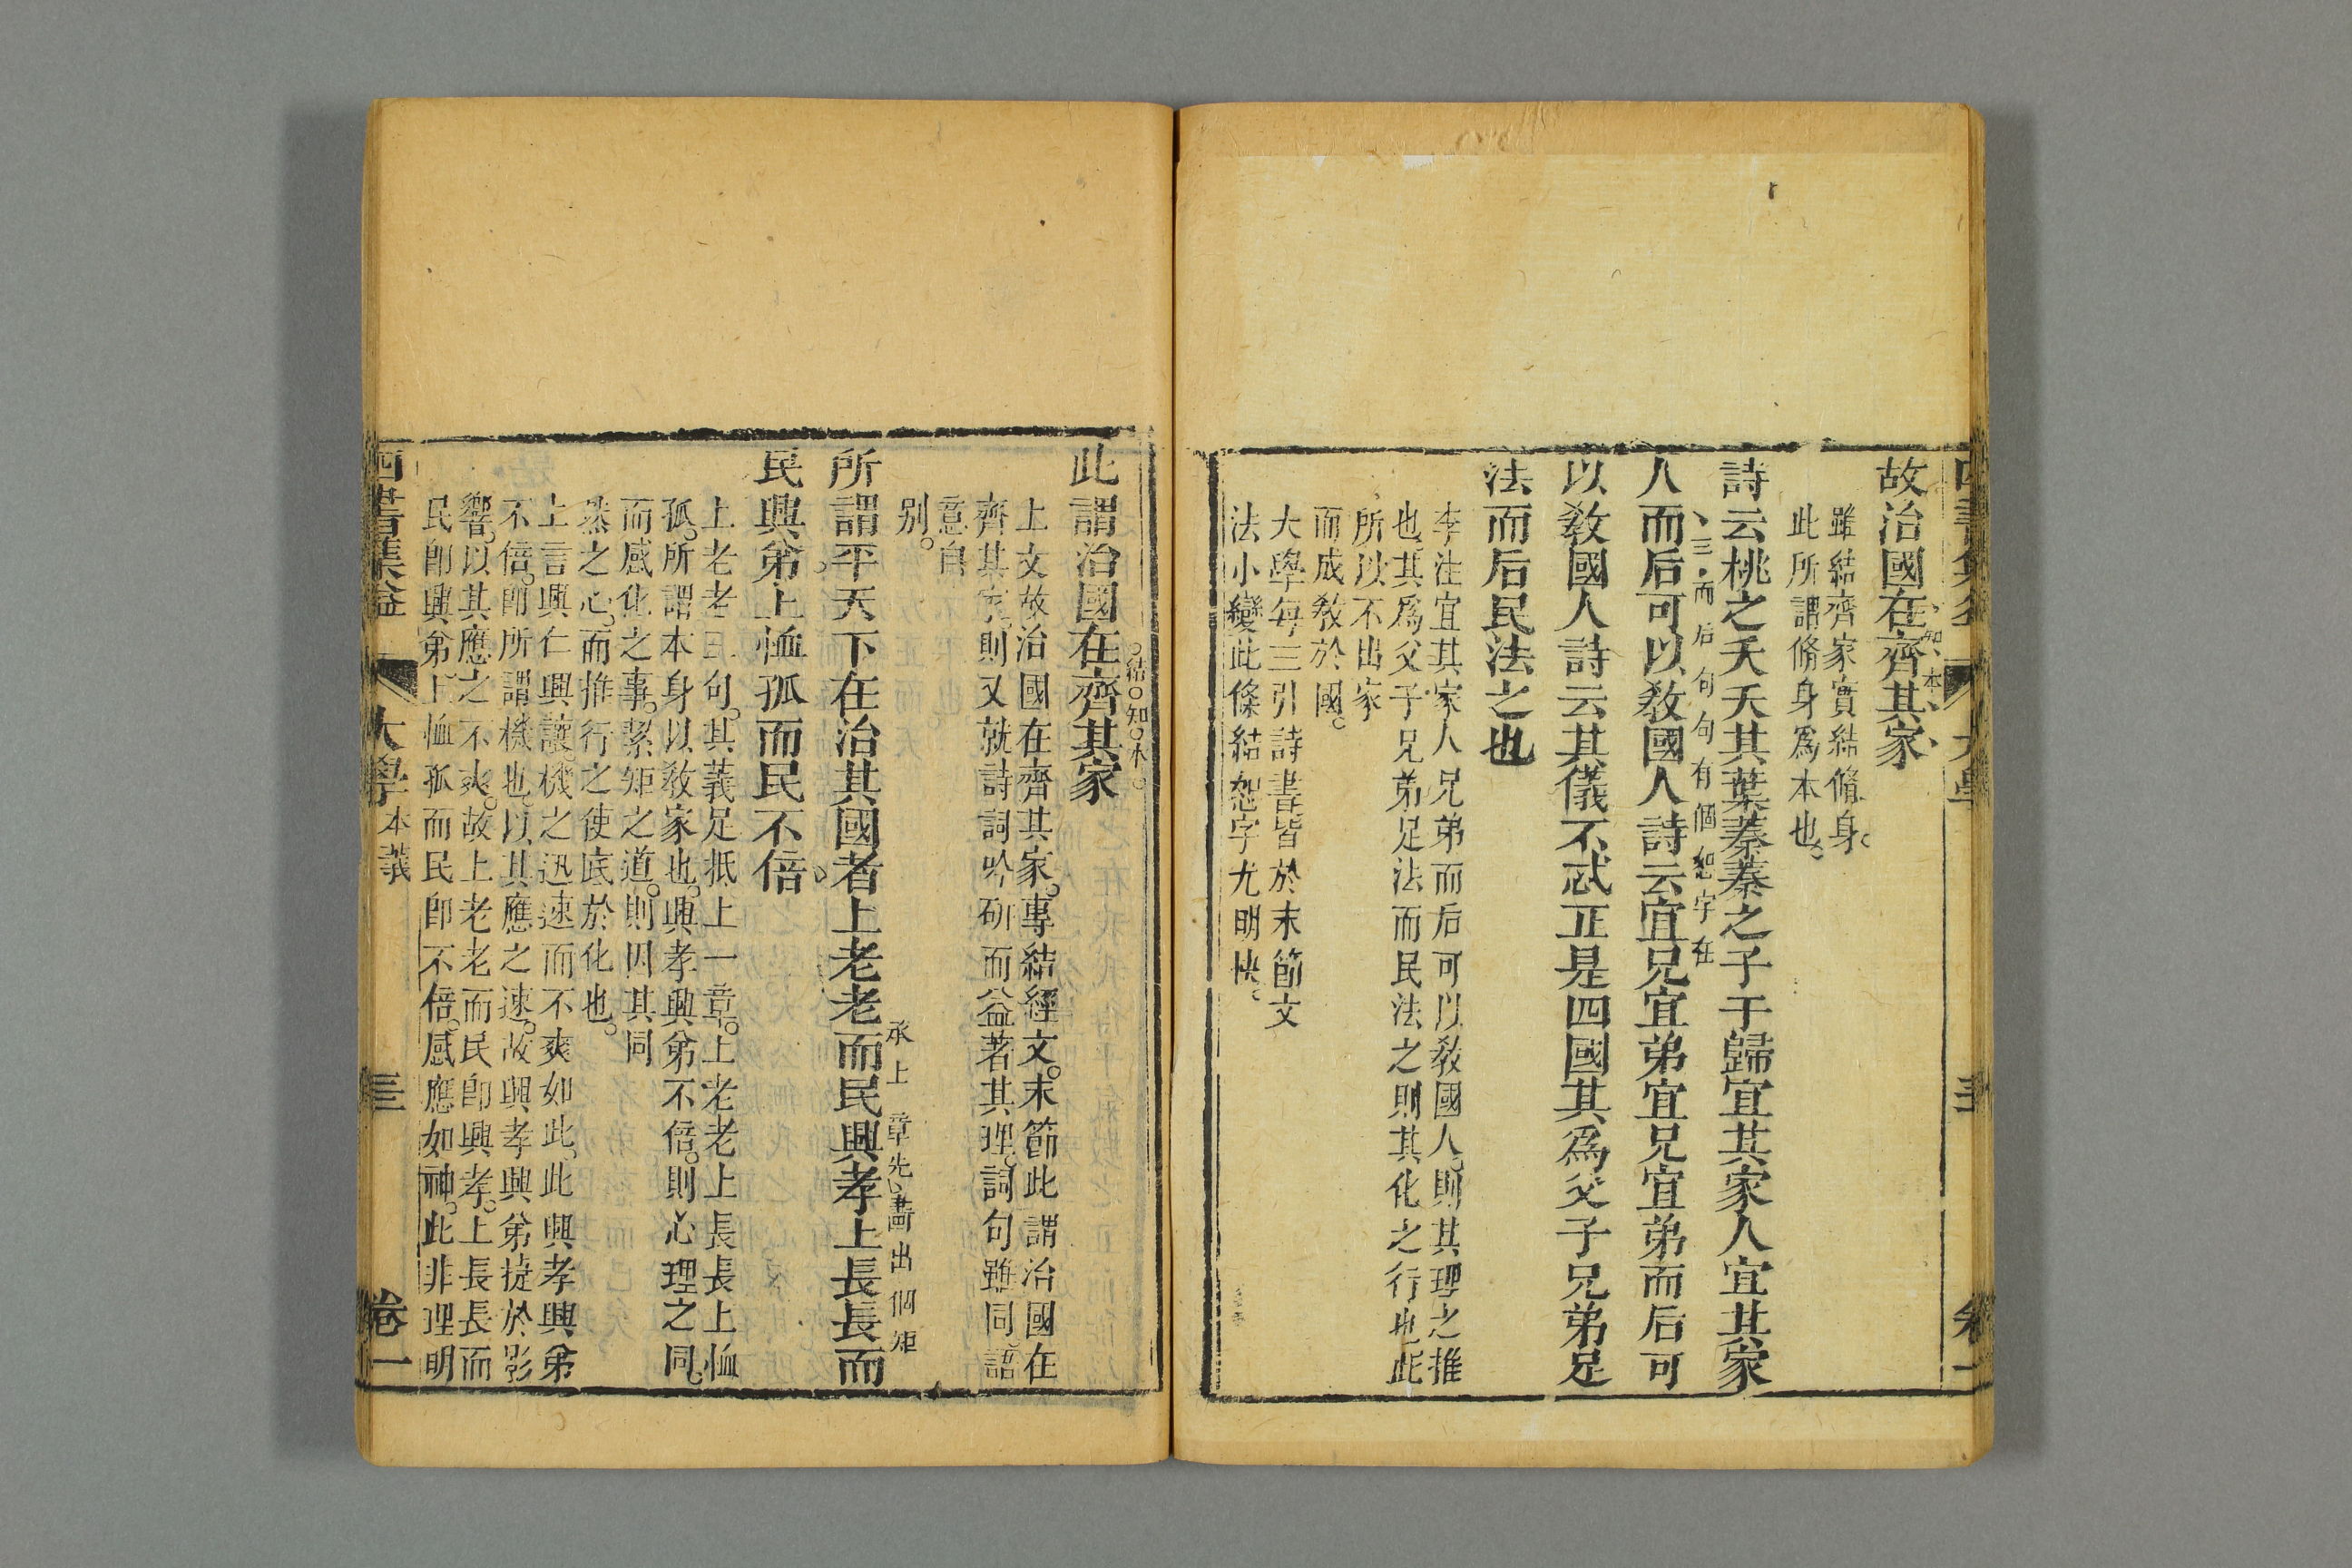 故治國在齊其家
知本
雖結齊家實結脩身
此所謂脩身爲本也
詩云桃之夭夭其葉蓁蓁之子于歸宜其家人宜其家
三而后句句有個恕字在
人而后可以敎國人詩云宜兄宜弟宜兄宜弟而后可
以敎國人詩云其儀不忒正是四國其爲父子兄弟足
法而后民法之也
李注宜其家人兄弟而后可以敎國人則其理之推
也其爲父子兄弟足法而民法之則其化之行也此
所以不出家
而成敎於國
大學每三引詩書皆於末節文
法小變此條結恕字尤明快
結知本
此謂治國在齊其家
上文故治國在齊其家專結經文末節此謂治國在
齊其家則又就詩詞吟硏而益著其理詞句雖同語
意自
別
承上章先畵出個矩
所謂平天下在治其國者上老老而民興孝上長長而
民興弟上恤孤而民不倍
上老老三句其義足抵上一章上老老上長長上恤
孤所謂本身以敎家也興孝興弟不倍則心理之同
而感化之事絜矩之道則因其同
然之心而推行之使底於化也
上言興仁興讓機之迅速而不爽如此此興孝興弟
不倍卽所謂機也以其應之速故興孝興弟捷於影
響以其應之不爽故上老老而民卽興孝上長長而
民卽興弟上恤孤而民卽不倍感應如神此非理明
四書集益
大學本義
卷一